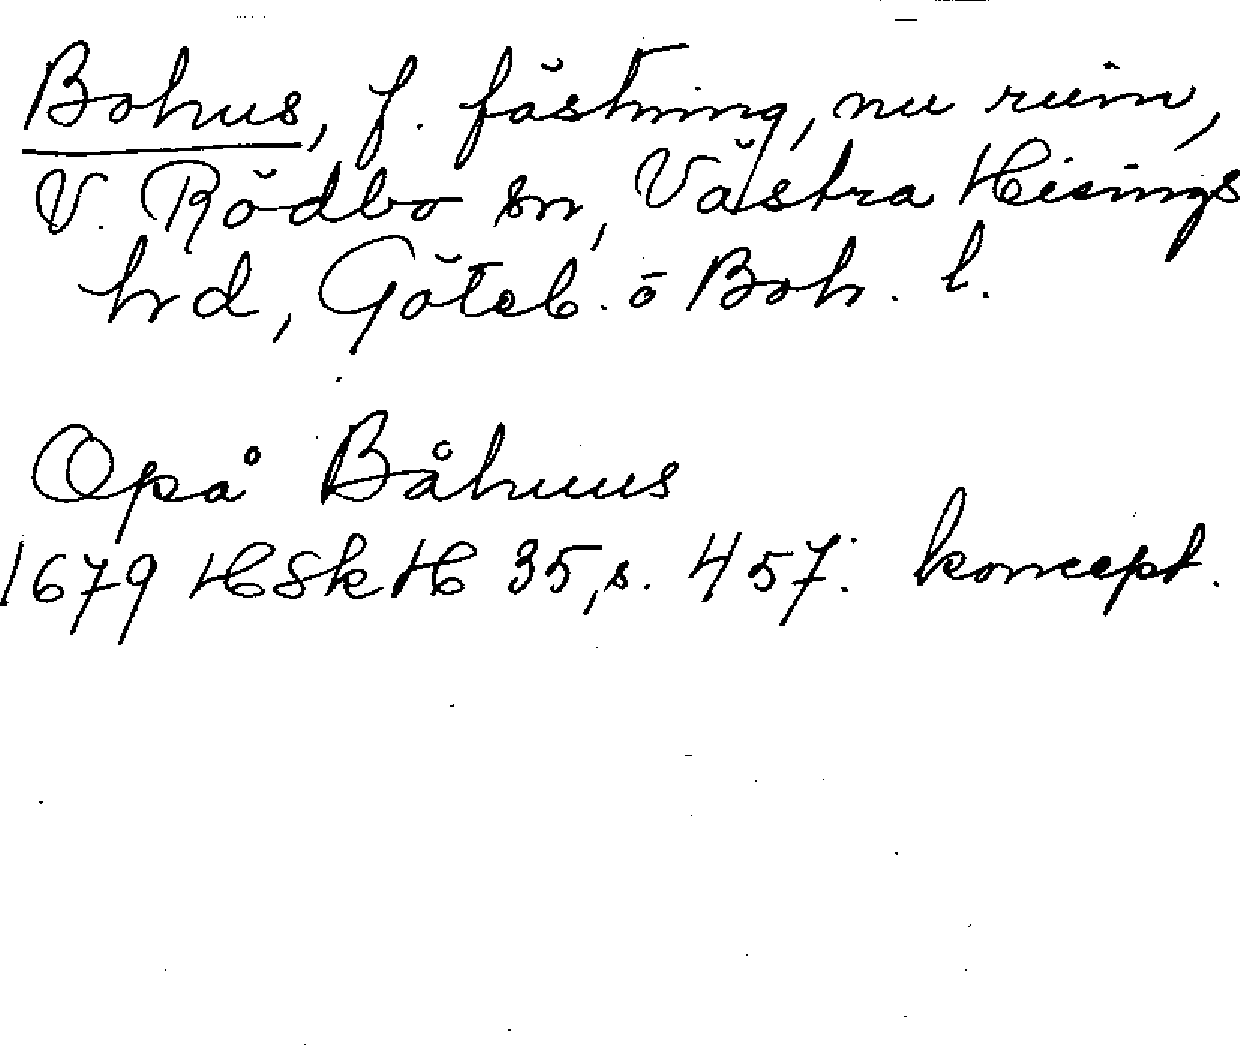 Bohus, f. fästning, nu ruin,
V. Rödbo sn, Västra Hisings
hrd, Göteb. o Boh. l.
Opå Båhuus
1679 HSkH 35, s. 457. koncept.